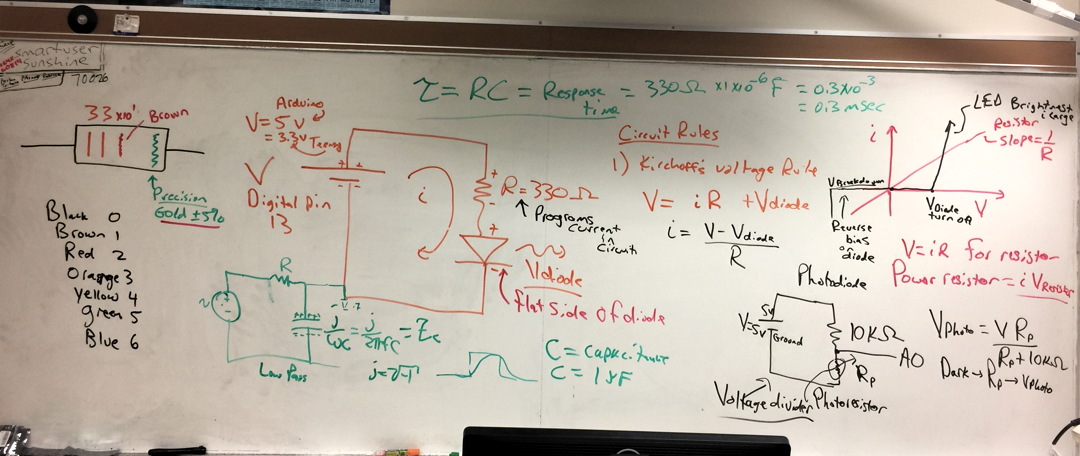 smartuser
sunshine
70026
τ = RC = Response time = 330Ω × 1×10⁻⁶ F = 0.3×10⁻³
= 0.3 msec
33×10¹
Brown
Precision
Gold ±5%
Black 0
Brown 1
Red 2
Orange 3
Yellow 4
green 5
Blue 6
Arduino
V = 5V
= 3.3V
V
Digital Pin
13
i
+
R = 330Ω
-
Programs
Current
in
Circuit
+
Vdiode
-
flat side of diode
R
Low Pass
j/ωC = j/2πfC = Zc
j = √-1
C = Capacitance
C = 1μF
Circuit Rules
1) Kirchoff's voltage Rule
V = iR + Vdiode
i = V - Vdiode / R
i
LED Brightness
i large
Resistor
Slope = 1/R
VBreakdown
V
VDiode
turn on
Reverse
bias
of diode
V = iR for resistor
Power resistor = i VResistor
Photodiode
5V
V=5V
Ground
10KΩ
A0
Rp
Voltage divider
Photoresistor
VPhoto = V Rp / Rp + 10KΩ
Dark → Rp → VPhoto